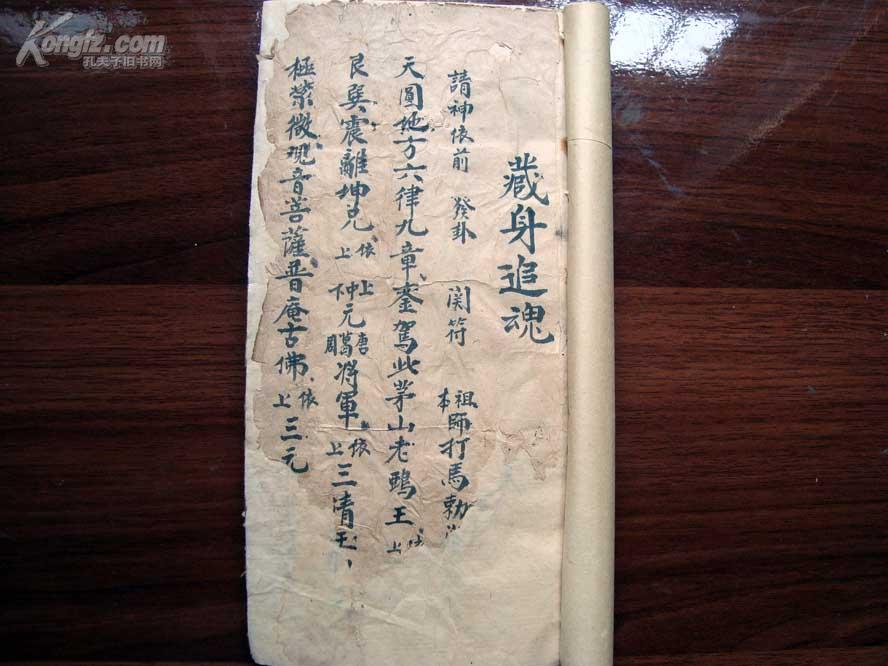 Kongfz.com
孔夫子旧书网
藏身追魂
請神依前 發卦 関符 祖本師打馬勅
天圓地方六律九章銮駕此茅山老鵶王依上
艮巽震離坤兑依上 上中下元唐葛周将軍依上三清玉
極紫微观音菩薩普庵古佛依上三元